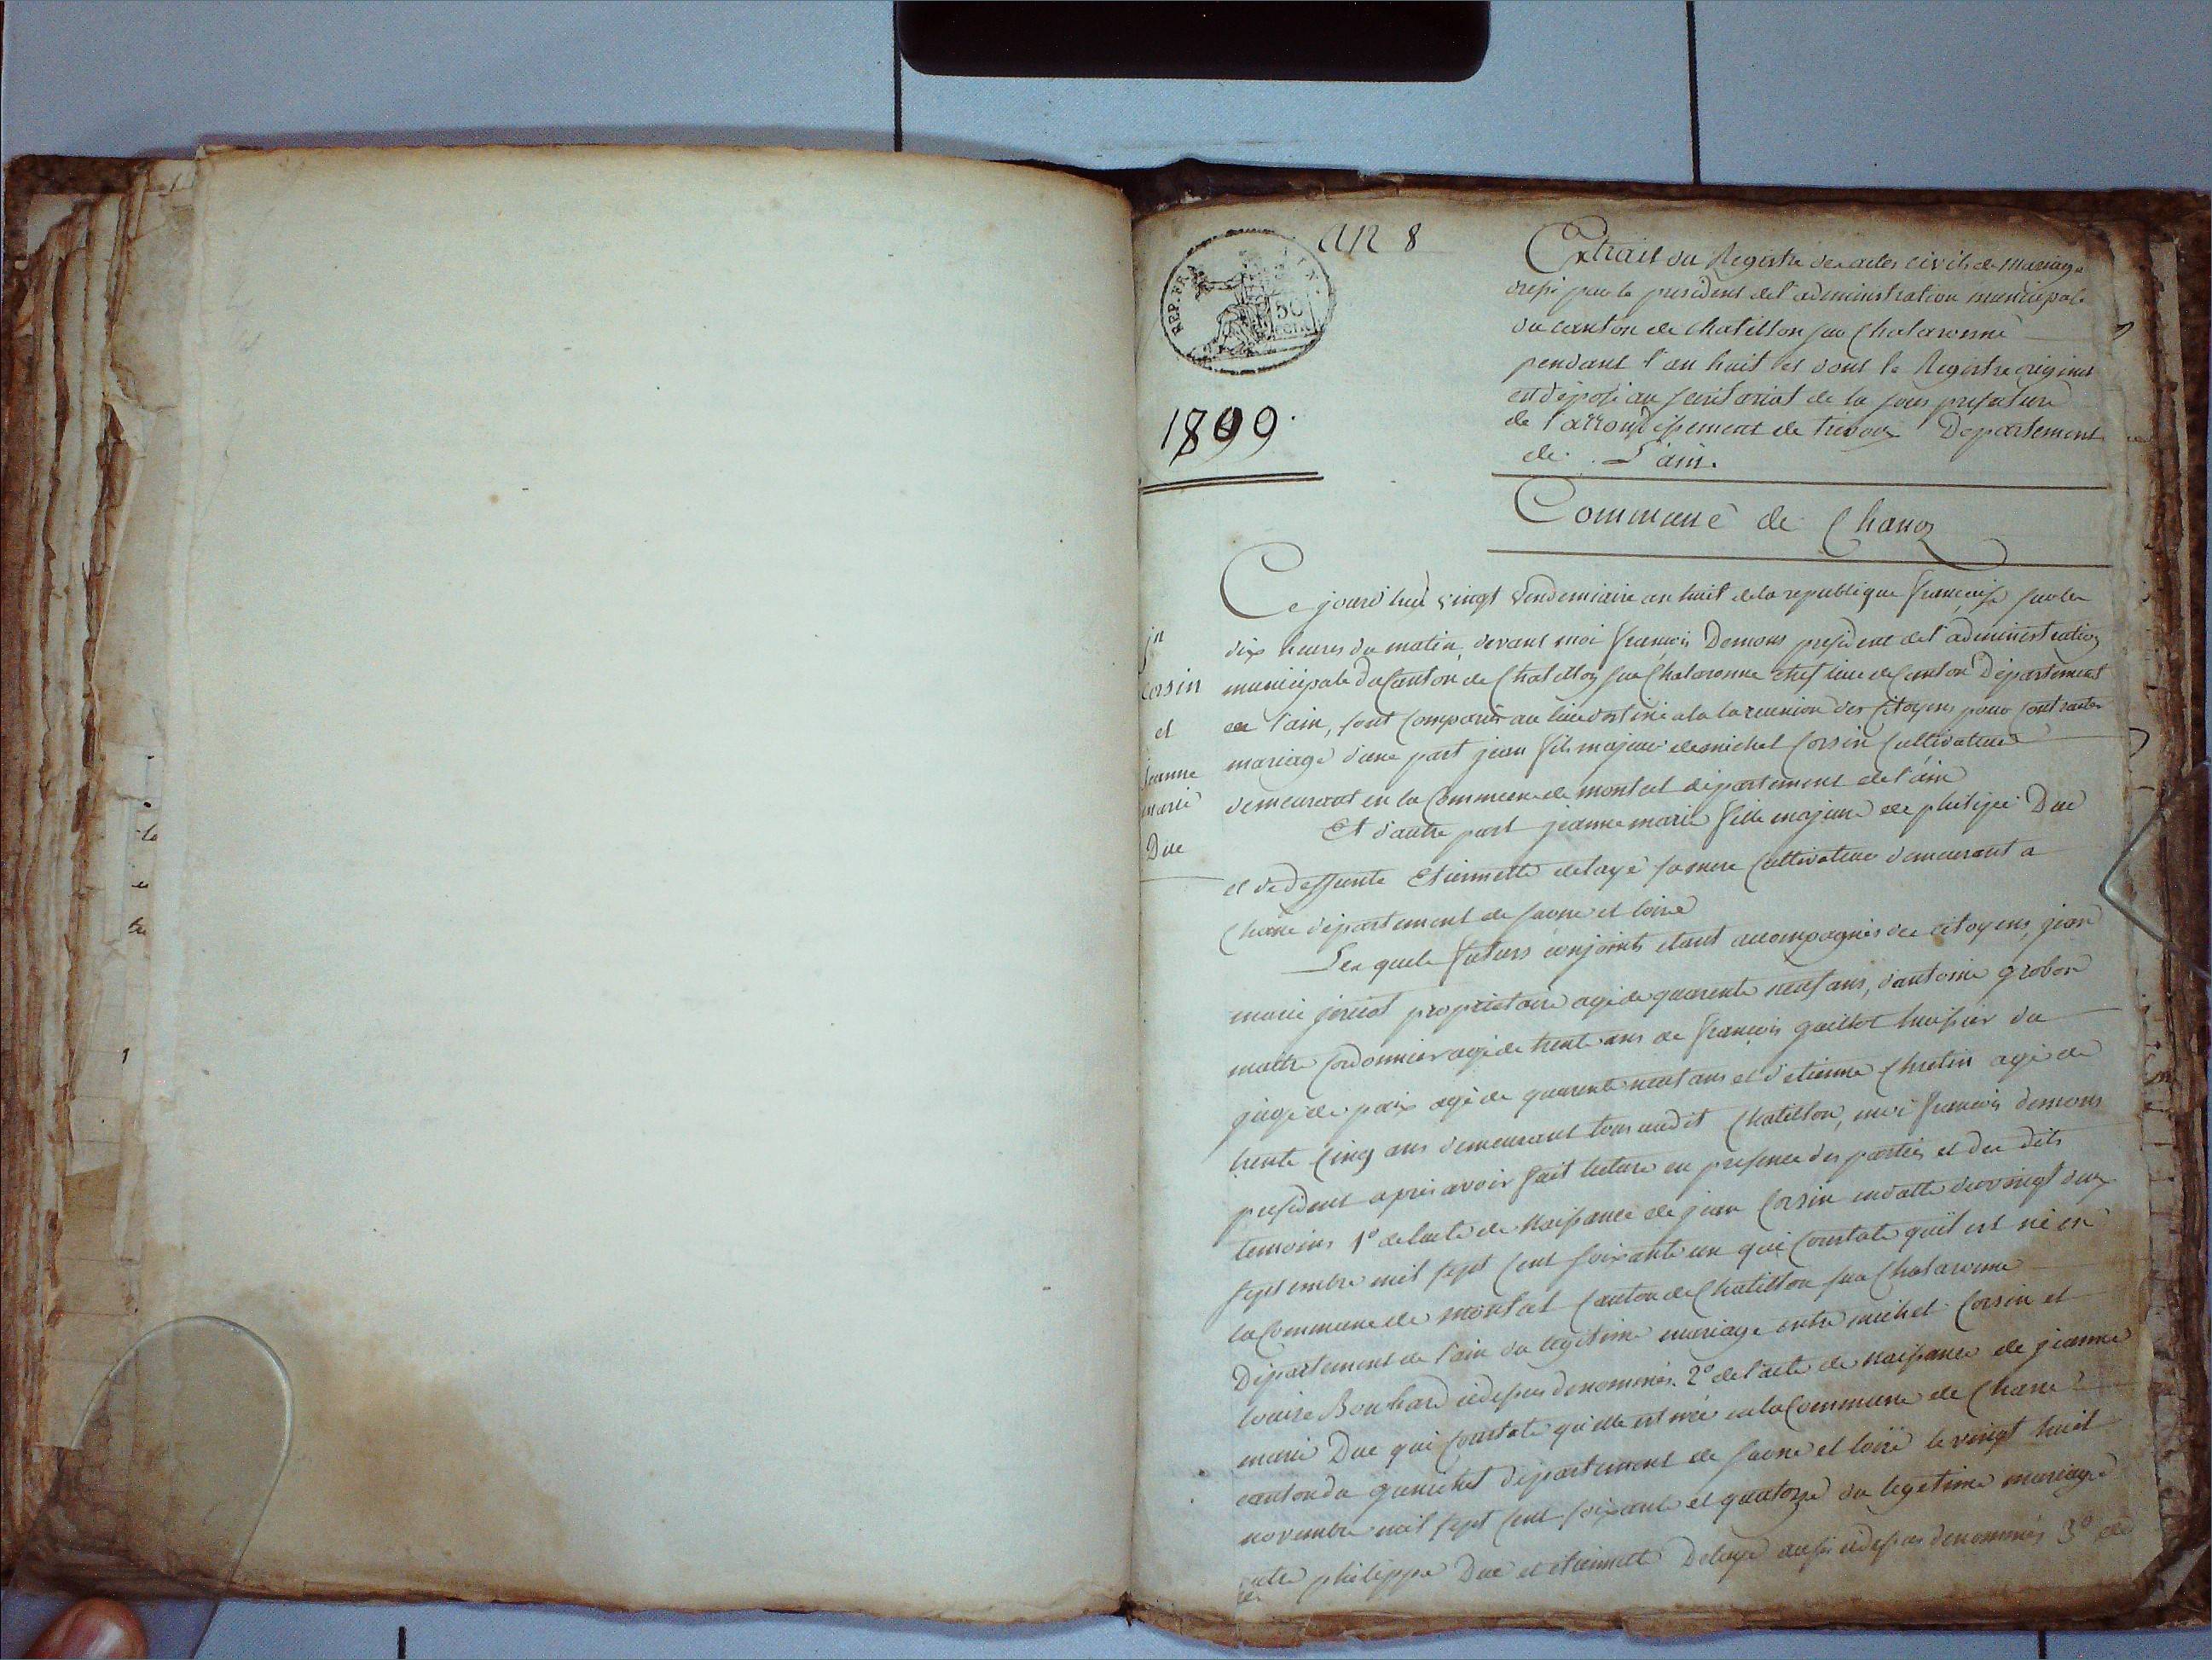 an 8
REP. FRA
50
1899.
Extrait du Registre des actes civils de mariage
par le president de l'administration municipale
du canton de chatillon sur Chalaronne
pendant l'an huit et dont le Registre
est déposé au de la sous prefature
de l'arrondissement de trevoux Departement
de L'ain.
Commune de Chanoz
Ce jourd'hui vingt vendemiaire an huit de la republique française sur les
dix heures du matin, devant moi françois Demons president de l'administration
municipale du Canton de Chatillon sur Chalaronne chef lieu de Canton Département
de l'ain, sont comparus au lieu destiné a la la reunion des Citoyens pour Contracter
mariage d'une part jean fils majeur de michel Corsin Cultivateur
demeurant en la Commune de departement de l'ain
Et d'autre part jeanne marie fille majeure de philipe Duc
et de deffunte Etiennette delaye sa mere Cultivateur demeurant a
Chane département de saone et loire
Les quels futurs conjoints etant accompagnés des citoyens, jean
marie proprietaire agé de quarente neuf ans, d'antoine grobon
maitre Cordonnier agé de trente ans de françois guillot huissier du
juge de paix agé de quarente neuf ans et d'etienne Chretin agé de
trente Cinq ans demeurant tous audit Chatillon, moi françois demons
president apres avoir fait lecture en presence des parties et des dits
temoins 1° de l'acte de Naissance de jean Corsin en datte du vingt deux
septembre mil sept Cent soixante un qui Constate qu'il est né en
la Commune de Canton de Chatillon sur Chalaronne
Département de l'ain du legitime mariage entre michel Corsin et
Bouchard cidessus denommés. 2° de l'acte de Naissance de jeanne
marie Duc qui Constate qu'elle est née en la Commune de Chane
canton du département de saone et loire le vingt huit
novembre mil sept Cent soixante et quatorze du legetime mariage
entre philippe Duc et etiennette Delaye aussi cidessus denommés 3° de
jn
Corsin
et
jeanne
marie
Duc